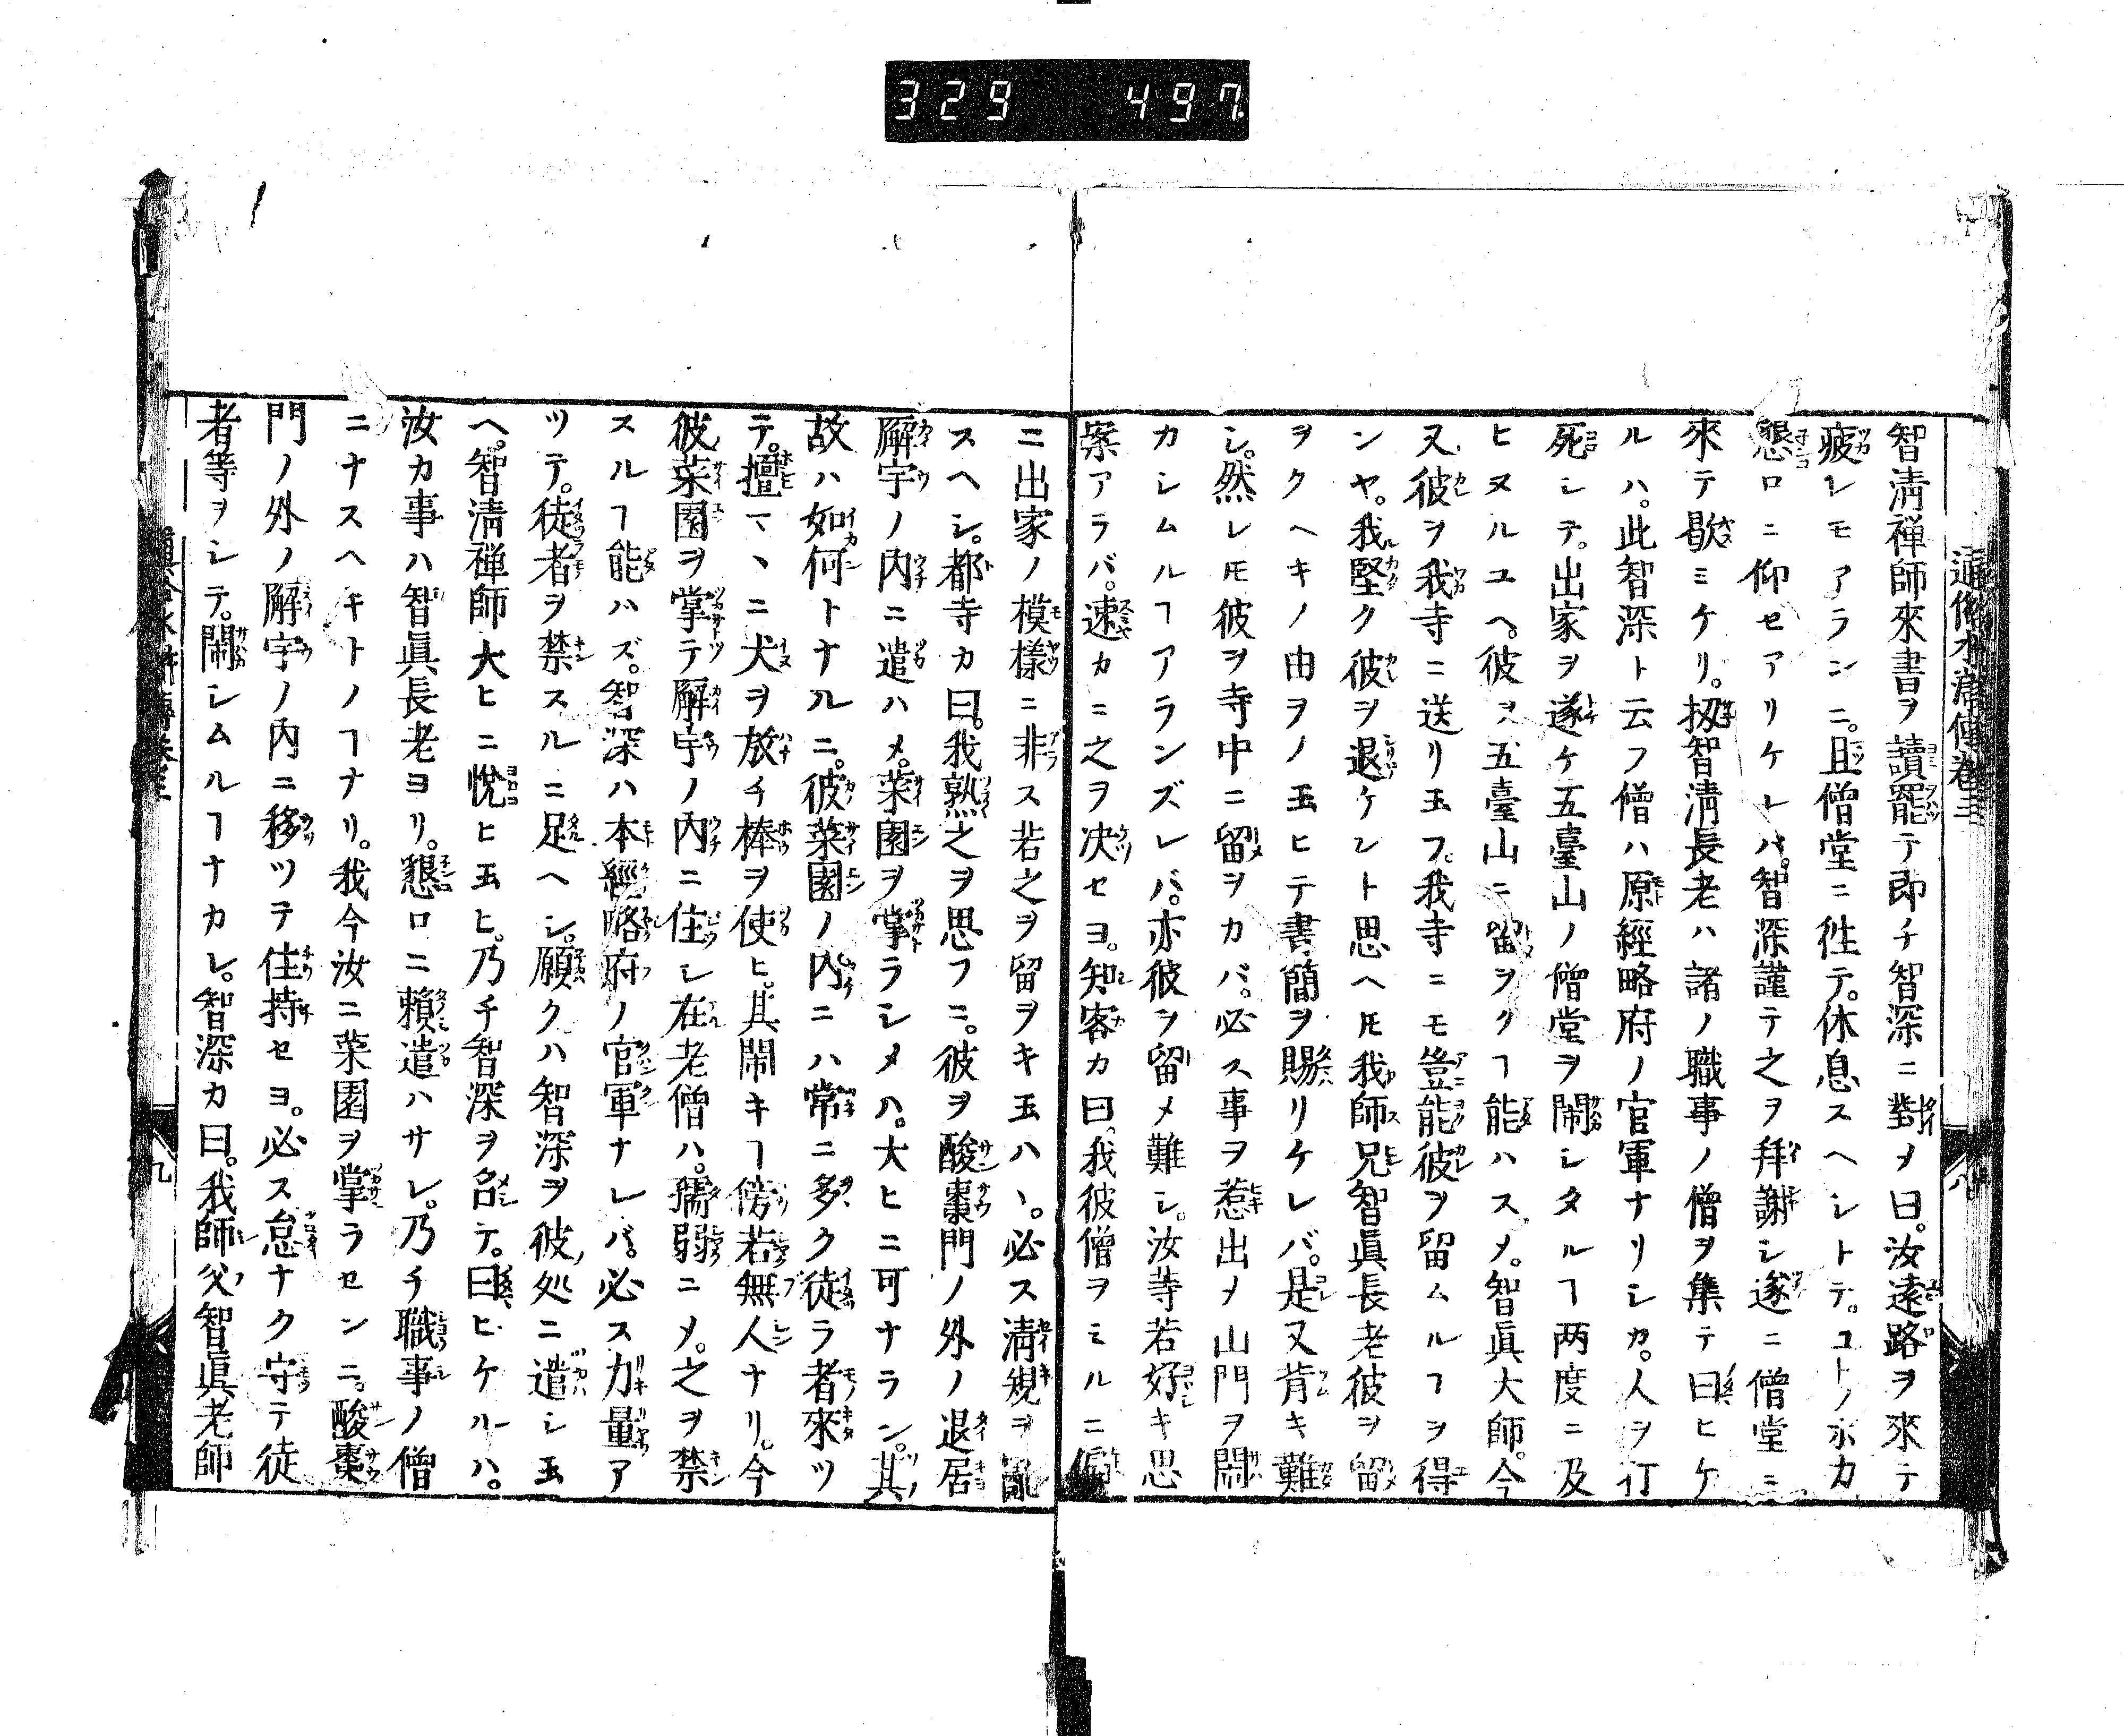 329 497
通俗水滸傳卷三
智淸禅師來書ヲ讀罷テ即チ智深ニ對ノ曰。汝遠路ヲ來テ
疲レモアランニ。且僧堂ニ徃テ。休息スヘシトテ。コトノホカ
懇ロニ仰セアリケレバ。智深謹テ之ヲ拜謝シ遂ニ僧堂ニ
來テ歇ミケリ。扨智淸長老ハ諸ノ職事ノ僧ヲ集テ曰ヒケ
ルハ。此智深ト云フ僧ハ原經略府ノ官軍ナリシカ。人ヲ打
死シテ。出家ヲ遂ケ五臺山ノ僧堂ヲ閙シタルヿ两度ニ及
ヒヌルユヘ。彼ヲ五臺山ニ留ヲクヿ能ハスメ。智眞大師。今
又彼ヲ我寺ニ送リ玉フ。我寺ニモ豈能彼ヲ留ムルヿヲ得
ンヤ。我堅ク彼ヲ退ケント思ヘ𪜈我師兄智眞長老彼ヲ留
ヲクヘキノ由ヲノ玉ヒテ書簡ヲ賜リケレバ。是又背キ難
シ。然レ𪜈彼ヲ寺中ニ留ヲカバ。必ス事ヲ惹出メ山門ヲ閙
カシムルヿアランズレバ。亦彼ヲ留メ難シ。汝等若好キ思
案アラバ。速カニ之ヲ决セヨ。知客カ曰。我彼僧ヲミルニ偏
ニ出家ノ模樣ニ非ス若之ヲ留ヲキ玉ハヽ。必ス淸規ヲ亂
スヘシ。都寺カ曰。我熟之ヲ思フニ。彼ヲ酸棗門ノ外ノ退居
廨宇ノ内ニ遣ハメ。菜園ヲ掌ラシメハ。大ヒニ可ナラン。其
故ハ如何トナルニ。彼菜園ノ内ニハ常ニ多ク徒ラ者來ツ
テ。擅マヽニ犬ヲ放チ棒ヲ使ヒ。其閙キヿ傍若無人ナリ。今
彼菜園ヲ掌テ廨宇ノ内ニ住シ在老僧ハ。孺弱ニメ。之ヲ禁
スルヿ能ハズ。智深ハ本經略府ノ官軍ナレバ。必ス力量ア
ツテ。徒者ヲ禁スルニ足ヘシ。願クハ智深ヲ彼処ニ遣シ玉
ヘ。智淸禅師大ヒニ悅ヒ玉ヒ。乃チ智深ヲ召テ。曰ヒケルハ。
汝カ事ハ智眞長老ヨリ。懇ロニ賴遣ハサレ。乃チ職事ノ僧
ニナスヘキトノヿナリ。我今汝ニ菜園ヲ掌ラセンニ。酸棗
門ノ外ノ廨宇ノ内ニ移ツテ住持セヨ。必ス怠ナク守テ徒
者等ヲシテ。閙シムルヿナカレ。智深カ曰。我師父智眞老師
九